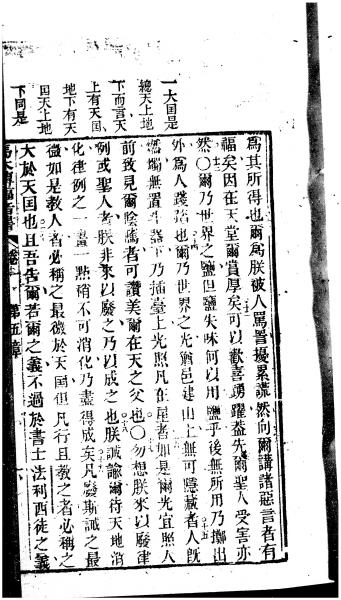 一大国是
總天上地
下而言天
上有天国
地下有天
国天上地
下同是
爲其所得也爾爲朕被人罵詈擾累謊然向爾講諸惡言者有
福矣因在天堂爾賞厚矣可以歡喜踴躍葢先爾聖人受害亦
然〇爾乃世界之鹽但鹽失味何以用鹽乎後無所用乃擲出
外爲人踐踏也爾乃世界之光猶邑建山上無可隱藏者人旣
燃燭無置斗器下乃插臺上光照凡在屋者如是爾光宜照人
前致見爾陰隲者可讚美爾在天之父也〇勿想朕來以廢律
例或聖人者朕非來以廢之乃以成之也朕誠諭爾待天地消
化律例之一畫一點稍不可消化乃盡得成矣凡廢斯誡之最
微如是教人者必稱之最微於天国但凡行且教之者必稱之
大於天国也且吾告爾若爾之義不過於書士法利西徒之義
福音書 卷 第五章